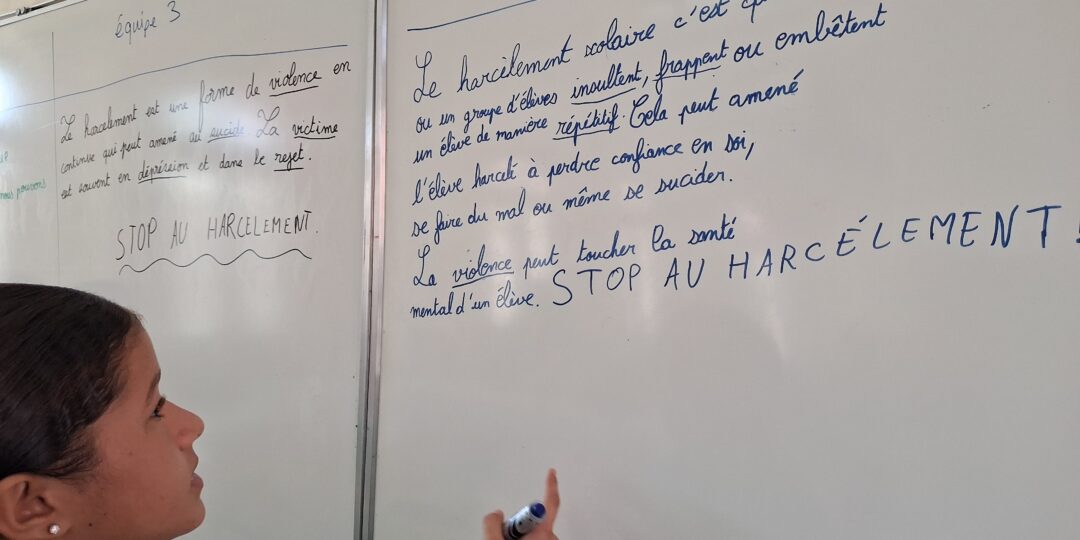 équipe 3
Le harcelement est une forme de violence en
continue qui peut amené au sucide La victime
est souvent en dépression et dans le rejet.
STOP AU HARCELEMENT.
nous pouvons
Le harcèlement scolaire c'est
ou un groupe d'élèves insultent, frappent ou embêtent
un élève de manière répétitif. Cela peut amené
l'élève harcelé à perdre confiance en soi,
se faire du mal ou même se sucider.
La violence peut toucher la santé
mental d'un élève. STOP AU HARCÉLEMENT!